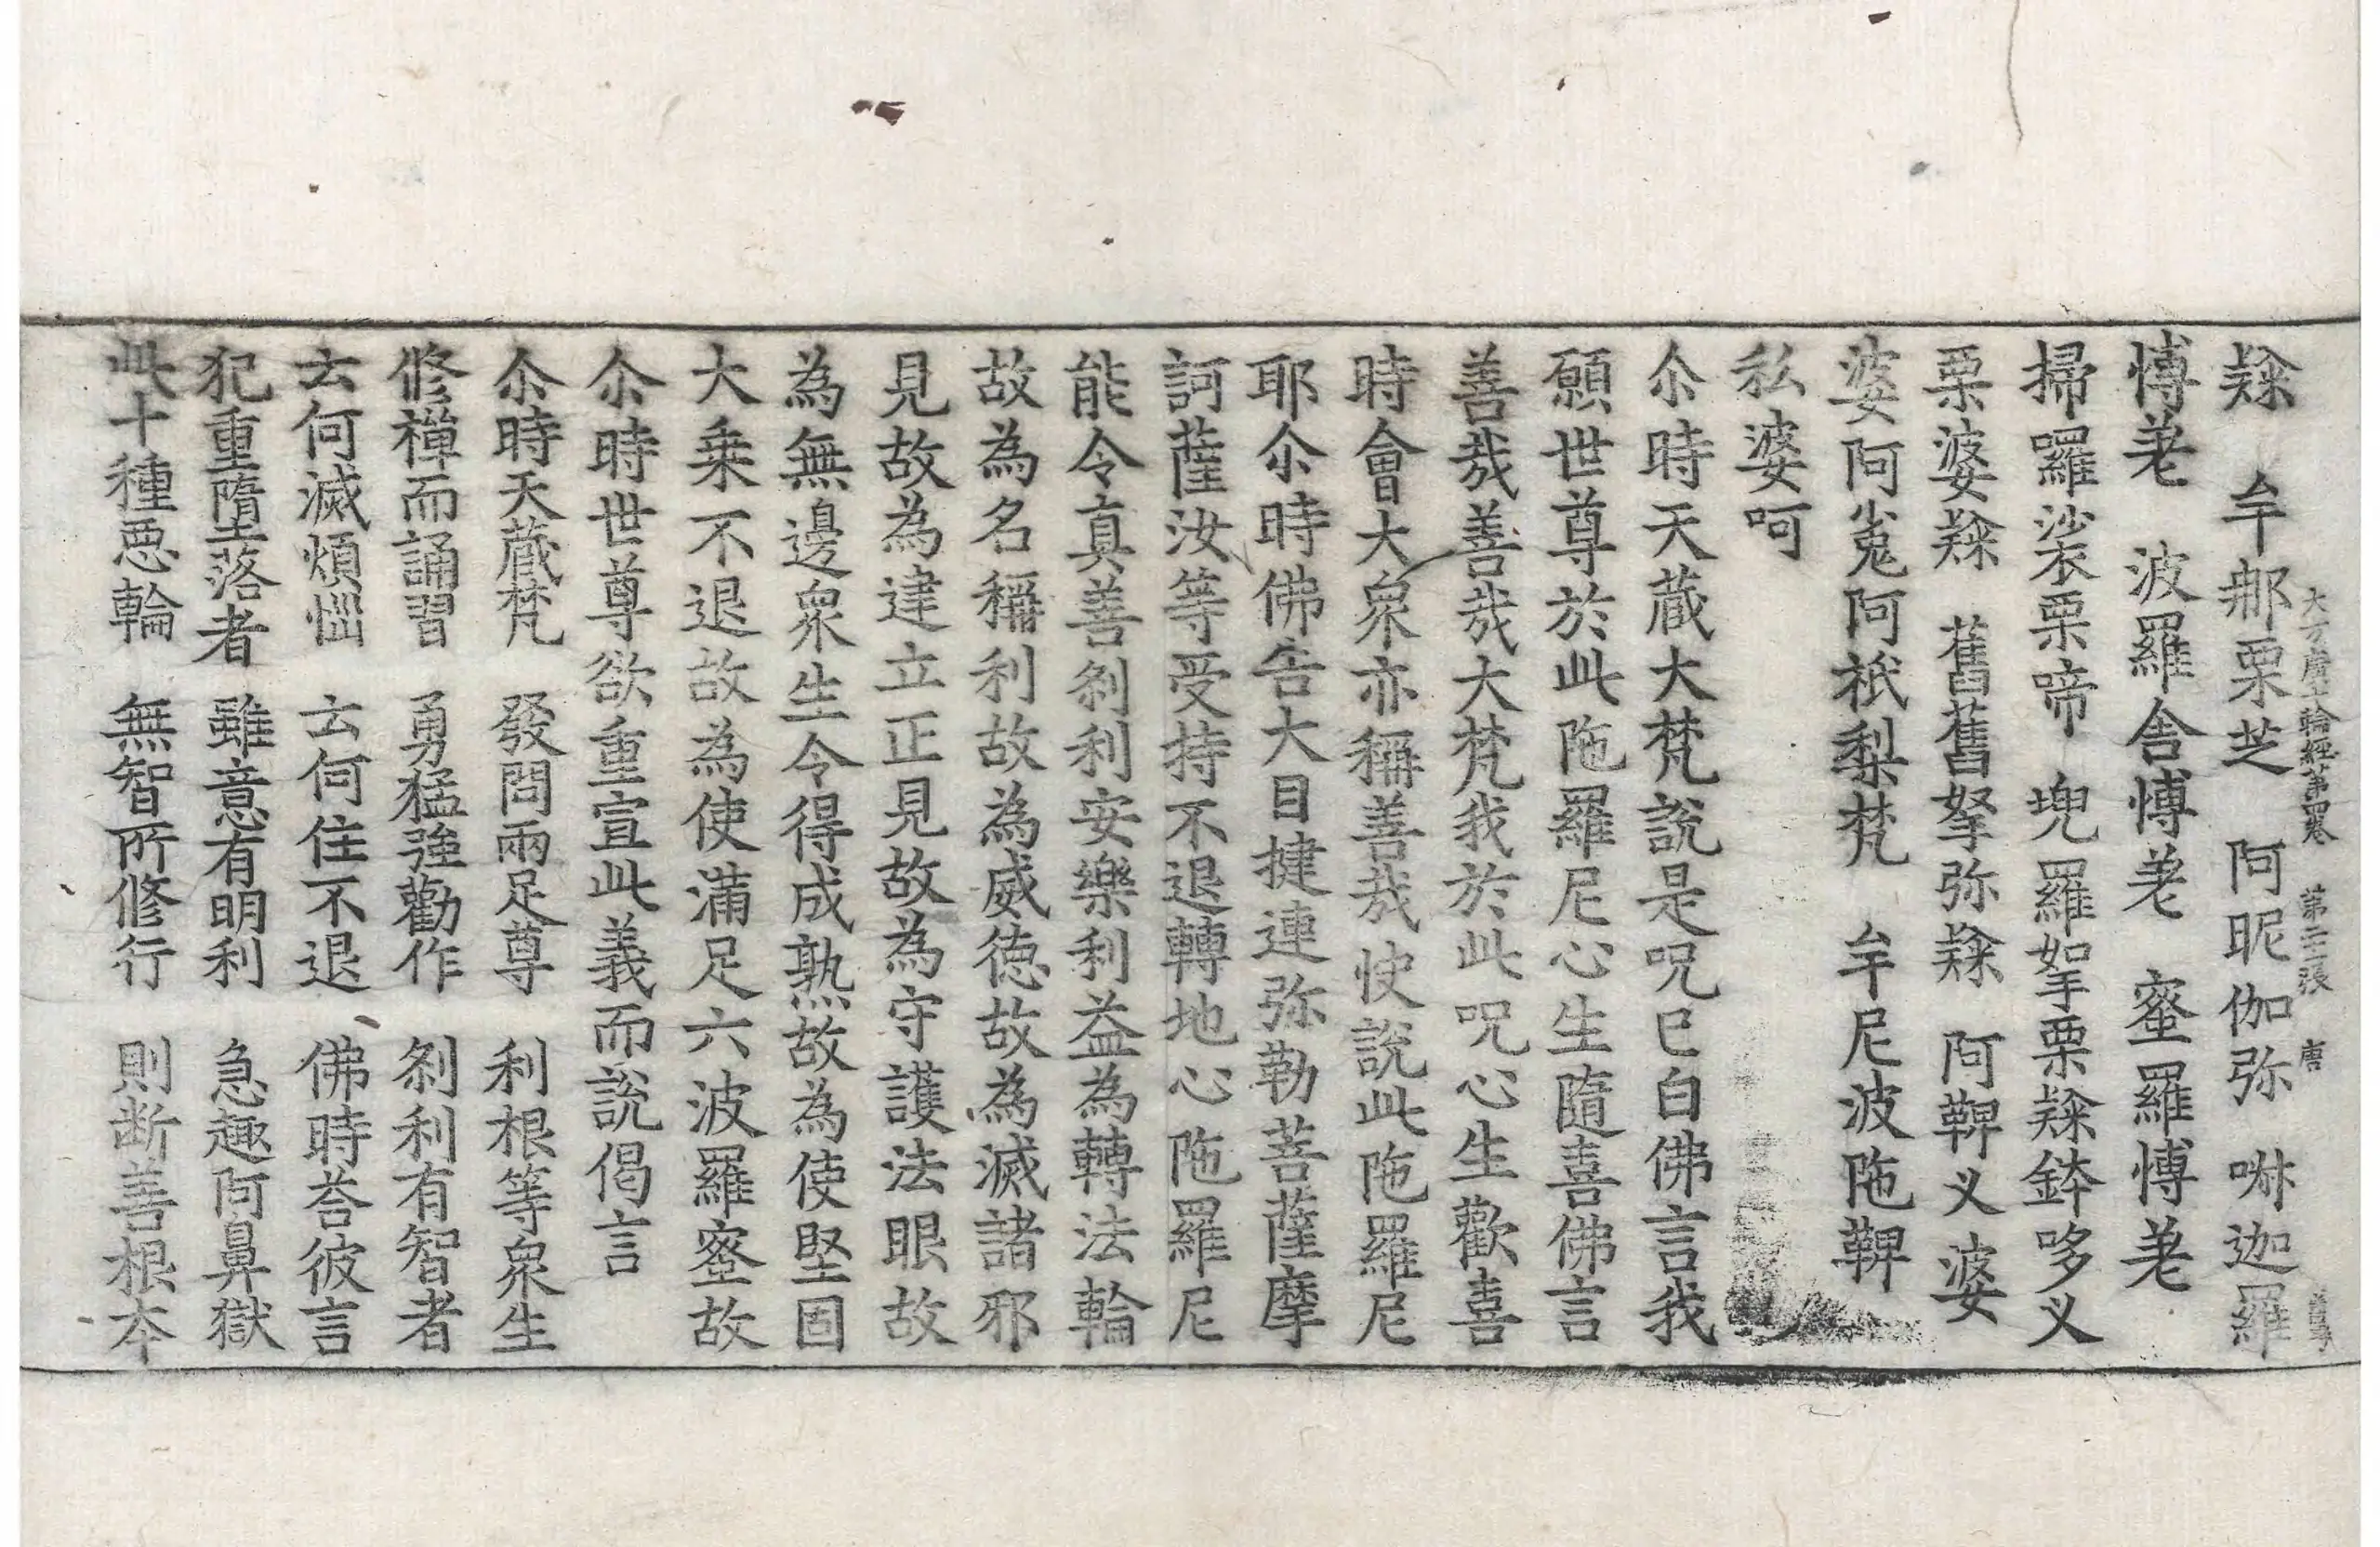 大方廣十輪經第四卷 第二十二張 唐
𥻦 牟那栗芝 阿昵伽弥 啉迦羅
愽差 波羅舎愽差 蜜羅愽差
掃囉裟栗啼 堄羅拏栗𥻦鉢哆义
栗婆𥻦 舊舊拏弥𥻦 阿鞞义婆
婆阿嵬阿祇梨梵 牟尼波陁鞞
私婆呵
尒時天蔵大梵說是呪已白佛言我
願世尊於此陁羅尼心生隨喜佛言
善㢤善㢤大梵我於此呪心生歡喜
時會大衆亦稱善㢤快說此陁羅尼
耶尒時佛告大目揵連弥勒菩薩摩
訶薩汝等受持不退轉地心陁羅尼
能令真善刹利安樂利益為轉法輪
故為名稱利故為威徳故為滅諸邪
見故為建立正見故為守護法眼故
為無邊衆生令得成熟故為使堅固
大乗不退故為使滿足六波羅蜜故
尒時世尊欲重宣此義而說偈言
尒時天蔵梵 發問兩足尊 利根等衆生
修禪而誦習 勇猛強勸作 刹利有智者
云何滅煩惱 云何住不退 佛時荅彼言
犯重墮落者 雖意有明利 急趣阿鼻獄
此十種惡輪 無智所修行 則断善根夲